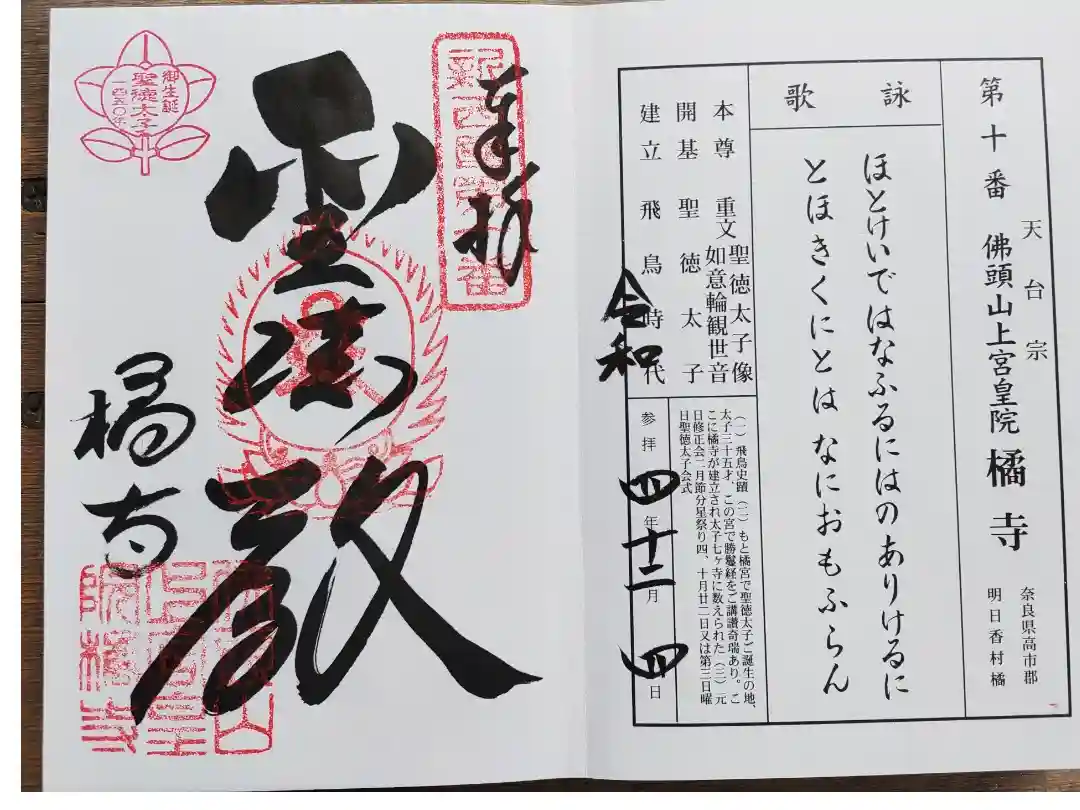 第十番 天台宗 佛頭山上宮皇院 橘寺
奈良県高市郡
明日香村橘
詠歌
ほとけいではなふるにはのありけるに
とほきくにとは なにおもふらん
本尊 重文 聖徳太子像
如意輪観世音
開基 聖徳太子
建立 飛鳥時代
(一)飛鳥史蹟(二)もと橘宮で聖徳太子ご誕生の地、
太子三十五才、この宮で勝鬘経をご講讃奇瑞あり。こ
こに橘寺が建立され太子七ヶ寺に数えられた(三)元
日修正会二月節分星祭り四、十月廿二日又は第三日曜
日聖徳太子会式
令和
参拝 四年十二月四日
奉拝
新西国第十番
橘寺
御生誕
聖徳太子
一四五〇年